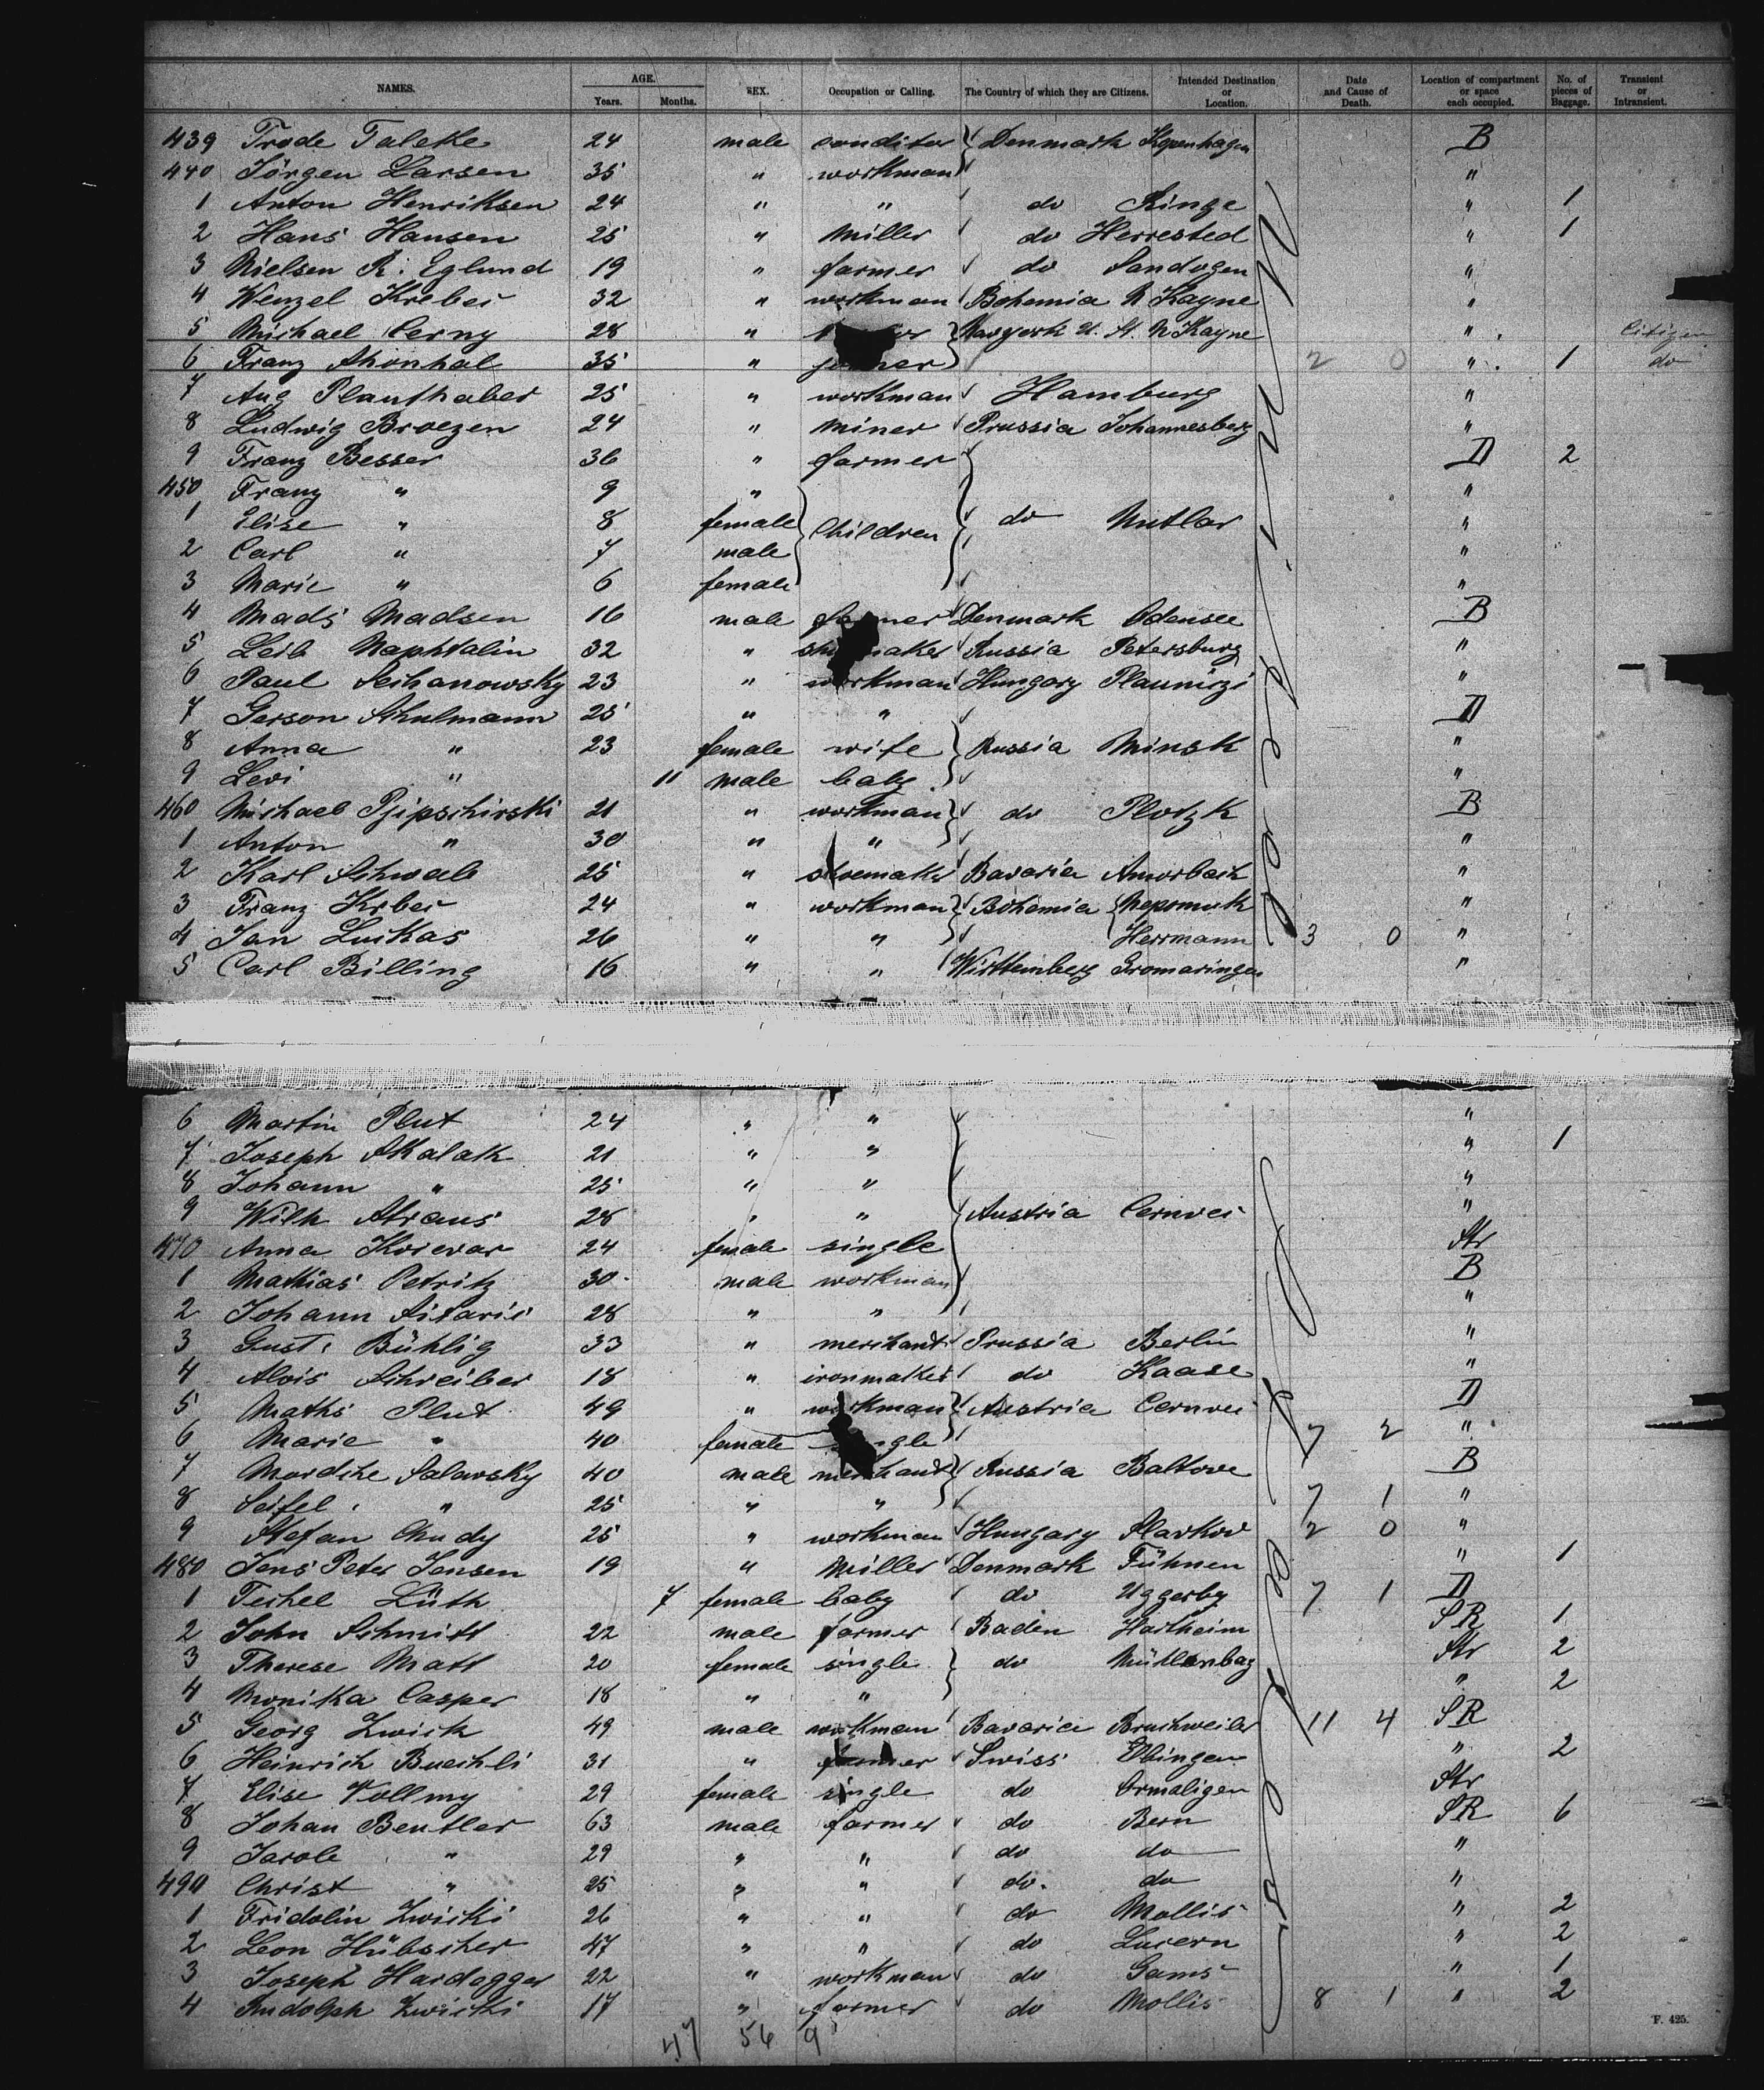 NAMES. AGE. Years. Months. SEX. Occupation or Calling. The Country of which they are Citizens. Intended Destination or Location. Date and Cause of Death. Location of compartment or space each occupied. No. of pieces of Baggage. Transient or Intransient.
439 Trode Faleke 24 male conditor Denmark Kopenhagen B
440 Jörgen Larsen 35 " workman "
1 Anton Henriksen 24 " " do Ringe " 1
2 Hans Hansen 25 " Miller do Herrested " 1
3 Nielsen R. Eglund 19 " farmer do Sandagen "
4 Wenzel Kreber 32 " workman Bohemia N Kayne "
5 Michael Cerny 28 " Newyork U. St. N Kayne " Citizen
6 Franz Schönhal 35 " 2 0 " 1 do
7 Aug Planthaber 25 " workman Hamburg "
8 Ludwig Broezen 24 " Miner Prussia Johannesberg "
9 Franz Besser 36 " farmer D 2
450 Franz " 9 " "
1 Elise " 8 female Children do Nutlar "
2 Carl " 7 male "
3 Marie " 6 female "
4 Mads Madsen 16 male farmer Denmark Odensee B
5 Leib Naphtalin 32 " shoemaker Russia Petersburg "
6 Paul Sechanowsky 23 " workman Hungary Plaunizi "
7 Gerson Schulmann 25 " " D
8 Anna " 23 female wife Russia Minsk "
9 Levi " 11 male baby "
460 Michael Pjipschirski 21 " workman do Plotzk B
1 Anton " 30 " " "
2 Karl Schwab 25 " shoemaker Bavaria Amorbach "
3 Franz Krber 24 " workman Bohemia Nepomuk "
4 Jan Luckas 26 " " Herrmann 3 0 "
5 Carl Billing 16 " " Württemberg Gromaringen "
6 Martin Plut 24 " " "
7 Joseph Skalak 21 " " " 1
8 Johann " 25 " " "
9 Wilh Straus 28 " " Austria Cernver "
470 Anna Korevar 24 female single Str
1 Mathias Petritz 30 male workman B
2 Johann Sitaris 28 " " "
3 Gust. Bühlig 33 " merchant Prussia Berlin "
4 Alois Schreiber 18 " ironmaker do Kaase "
5 Maths Plut 49 " workman Austria Cernver D
6 Marie " 40 female single 7 2 "
7 Mordche Salawsky 40 male merchant Russia Baltove B
8 Seifel " 25 " " 7 1 "
9 Stefan Chudy 25 " workman Hungary Slavkov 2 0 "
480 Jens Peter Jensen 19 " Miller Denmark Fühnen " 1
1 Techel Lüth 7 female baby do Uggerby 7 1 D
2 John Schmitt 22 male farmer Baden Hartheim SR 1
3 Therese Matt 20 female single do Mühlenbag Str 2
4 Monika Casper 18 " " " 2
5 Georg Zwick 49 male workman Bavaria Bruchweiler 11 4 SR
6 Heinrich Buechli 31 " farmer Swiss Elbingen " 2
7 Elise Vollmy 29 female single do Ormaligen Str
8 Johan Beutler 63 male farmer do Bern SR 6
9 Jacob " 29 " " do do "
490 Christ " 25 " " do. do "
1 Fridolin Zwicki 26 " " do Mollis " 2
2 Leon Hübscher 47 " " do Lucern " 2
3 Joseph Hardegger 22 " workman do Gams " 1
4 Rudolph Zwicki 17 " farmer do Mollis 8 1 " 2
47 56 9
F. 425.